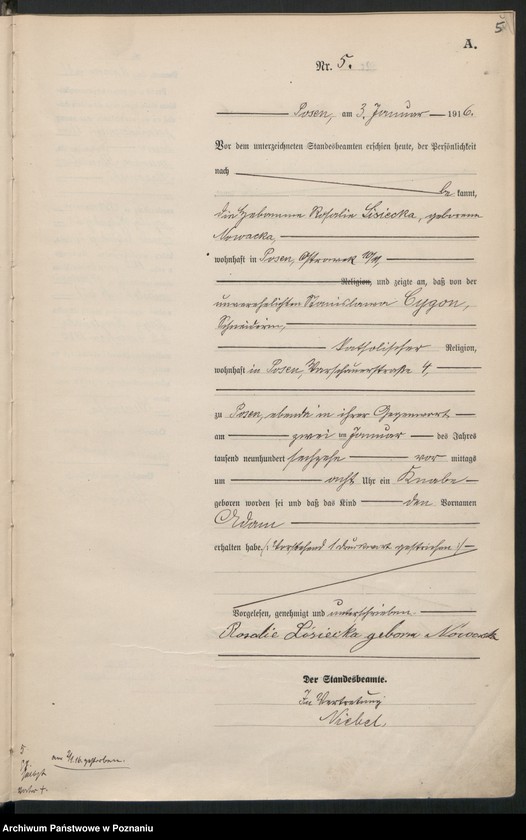 5
A.
Nr. 5.
Posen, am 3. Januar 1916.
Vor dem unterzeichneten Standesbeamten erschien heute, der Persönlichkeit
nach
be kannt,
die Hebamme Rosalie Lisiecka, geborene
Nowacka,
wohnhaft in Posen, Ostrowek 10/11,
Religion, und zeigte an, daß von der
unverehelichten Stanislawa Cygon,
Schneiderin,
katholischer Religion,
wohnhaft in Posen, Warschauerstraße 4,
zu Posen, ebenda in ihrer Gegenwart
am zwei ten Januar des Jahres
tausend neunhundert sechzehn vor mittags
um acht Uhr ein Knabe
geboren worden sei und daß das Kind den Vornamen
Adam
erhalten habe. (Vorstehend 1 Druckwort gestrichen)
Vorgelesen, genehmigt und unterschrieben.
Rosalie Lisiecka geborne Nowacka
Der Standesbeamte.
In Vertretung
Niebel.
5
am gestorben.
Archiwum Państwowe w Poznaniu